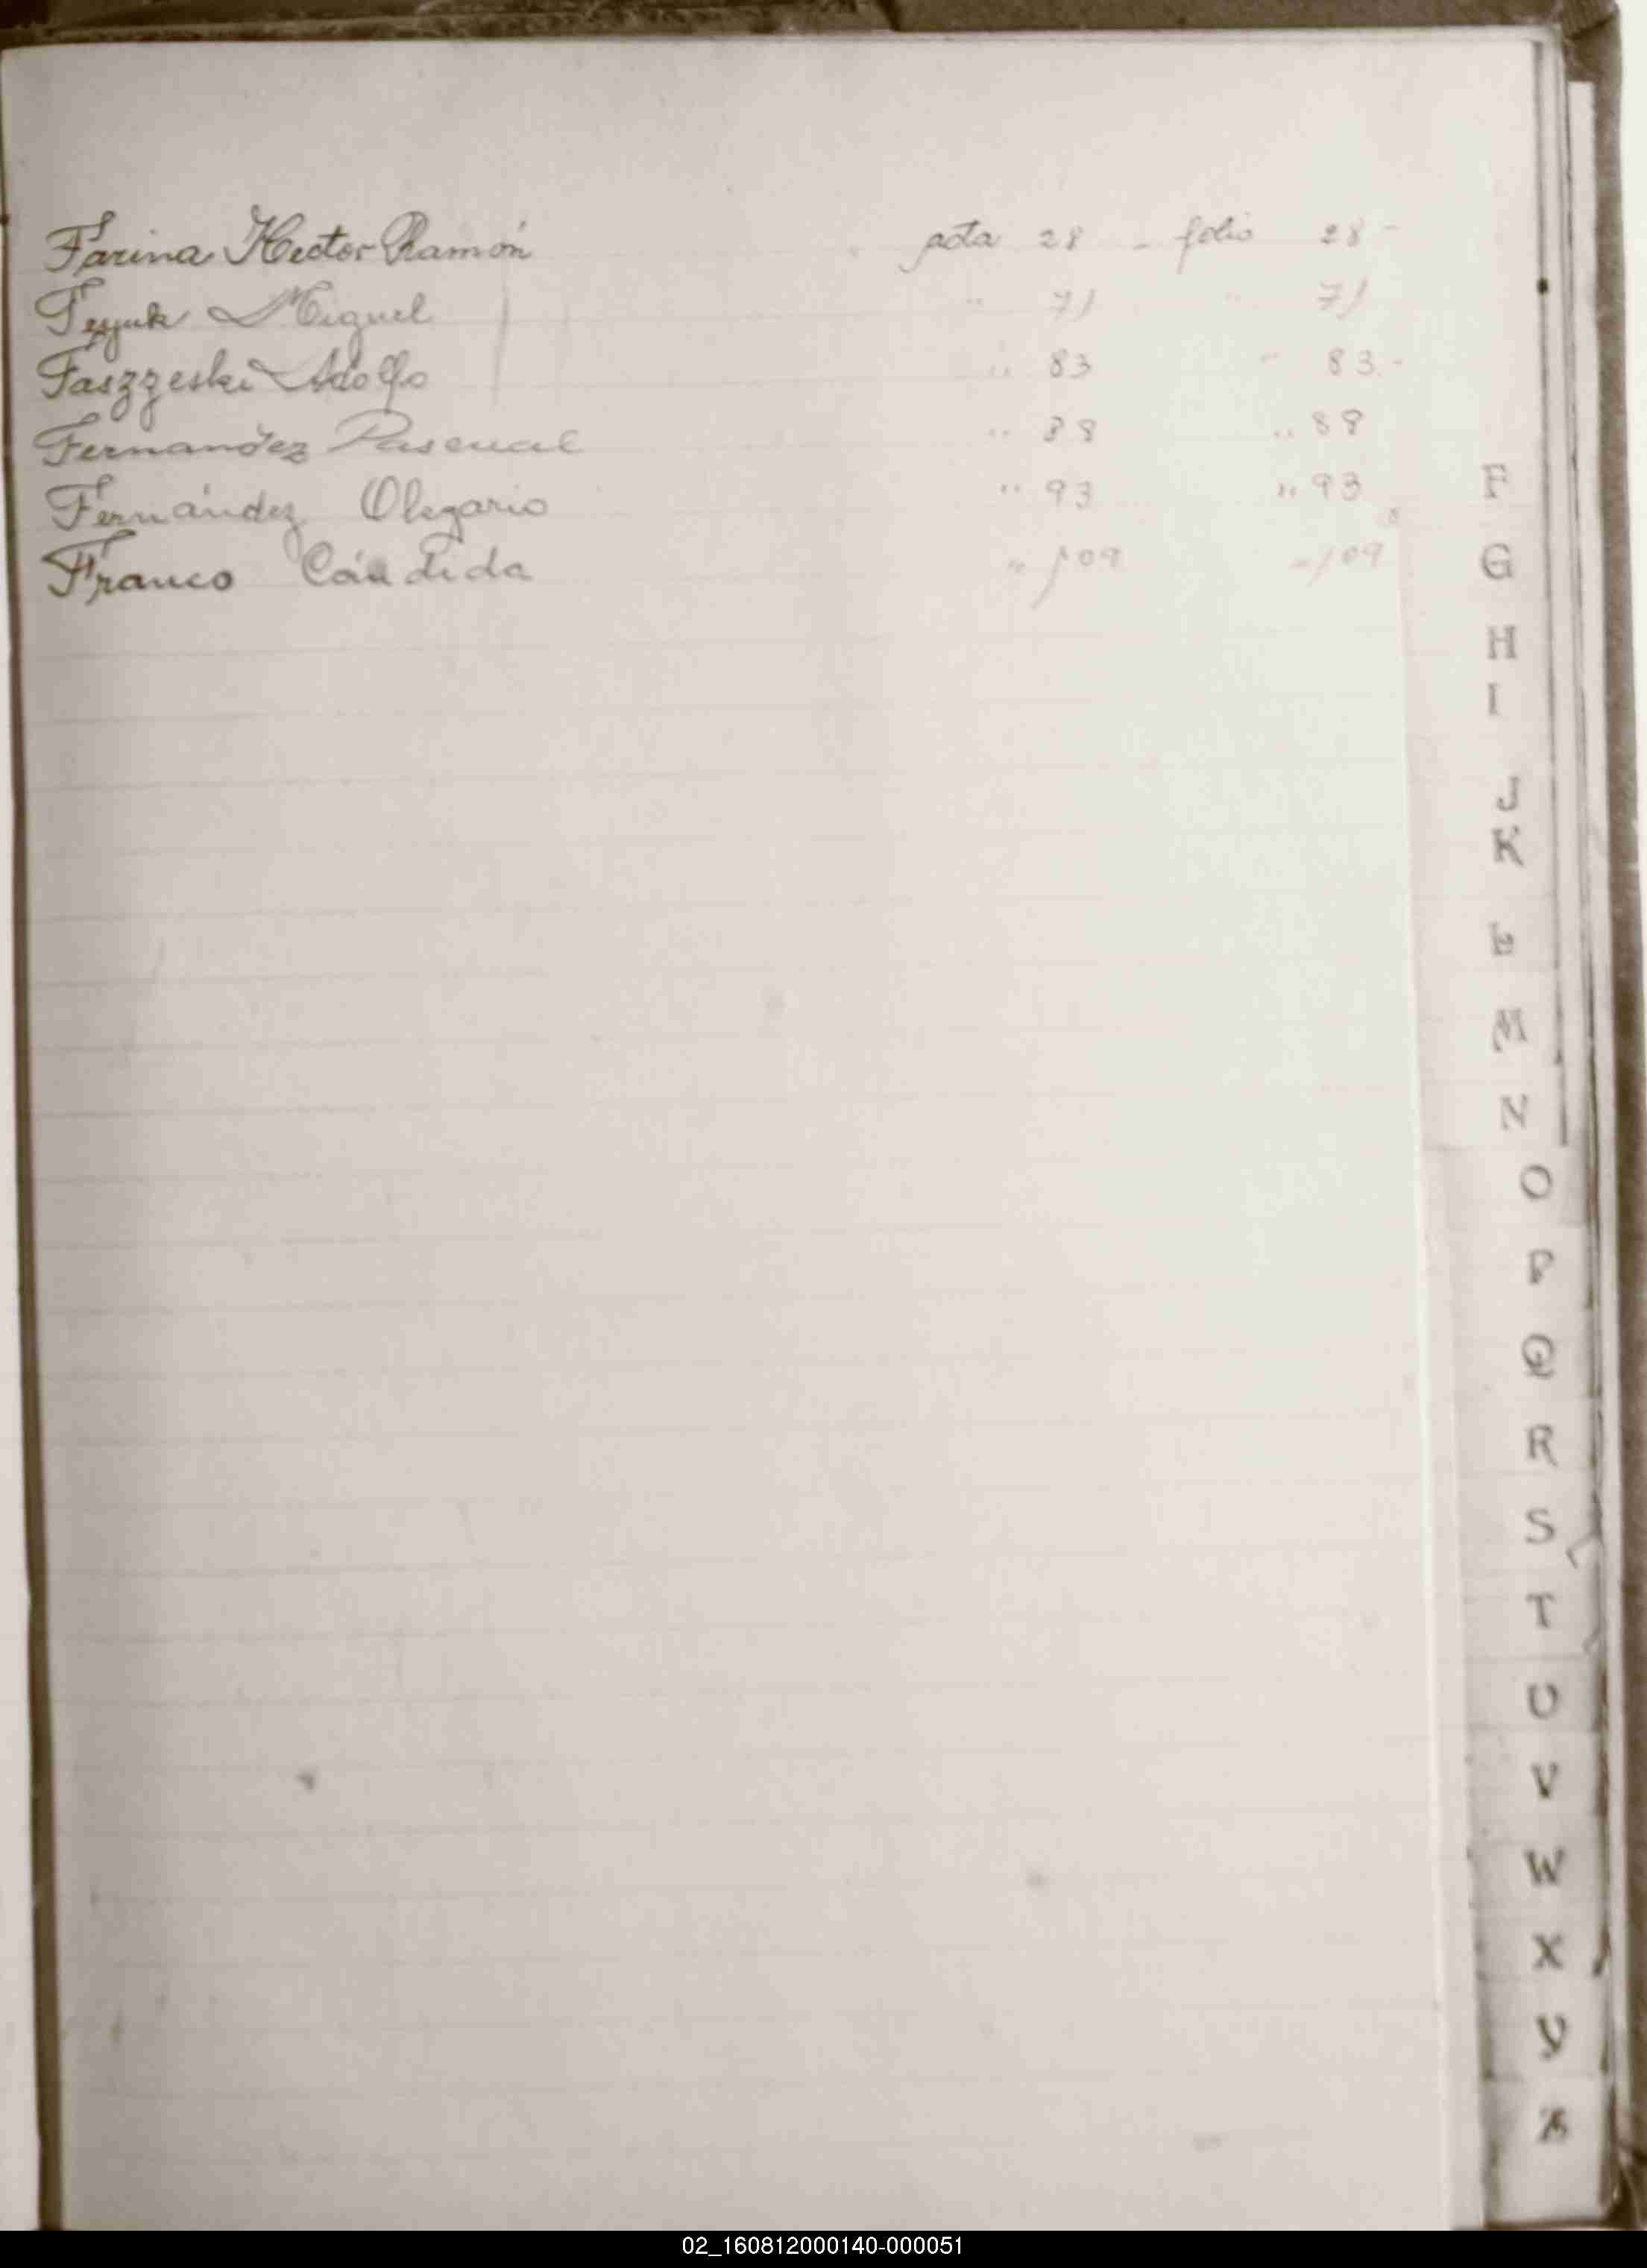 Farina Hector Ramón acta 28 - folio 28 -
Feyuk Miguel " 71 " 71
Faszzeski Adolfo " 83 " 83. -
Fernandez Pascual " 88 " 88
Fernández Olegario " 93 " 93
Franco Cándida " 109 " 109
F
G
H
I
J
K
L
M
N
O
P
Q
R
S
T
U
V
W
X
Y
Z
02_160812000140-000051